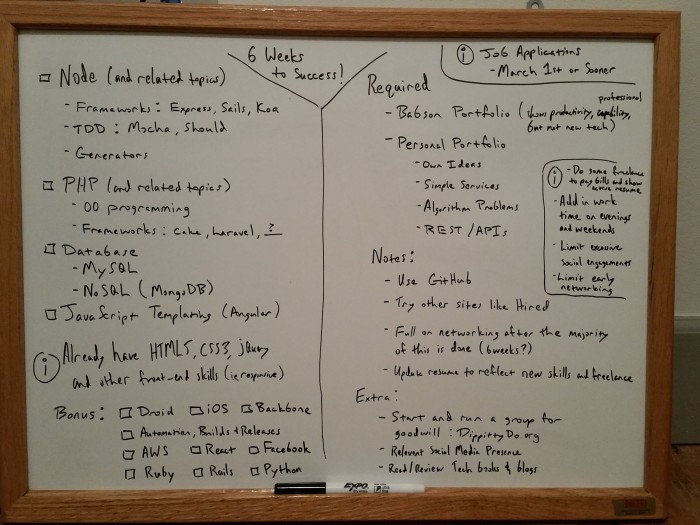 6 Weeks
to Success!
Node (and related topics)
- Frameworks: Express, Sails, Koa
- TDD: Mocha, Should
- Generators
PHP (and related topics)
- OO programming
- Frameworks: Cake, Laravel, ?
Database
- MySQL
- NoSQL (MongoDB)
JavaScript Templating (Angular)
i Already have HTML5, CSS3, jQuery
and other front-end skills (ie responsive)
Bonus: Droid iOS Backbone
Automation, Builds & Releases
AWS React Facebook
Ruby Rails Python
i Job Applications
- March 1st or Sooner
Required
- Babson Portfolio (show productivity, professional capability,
but not new tech)
- Personal Portfolio
- Own Ideas
- Simple Services
- Algorithm Problems
- REST/APIs
i - Do some freelance
to pay bills and show
active resume
- Add in work
time on evenings
and weekends
- Limit excessive
social engagements
- Limit early
networking
Notes:
- Use GitHub
- Try other sites like Hired
- Full on networking after the majority
of this is done (6 weeks?)
- Update resume to reflect new skills and freelance
Extra:
- Start and run a group for
goodwill: DippittyDo.org
- Relevent Social Media Presence
- Read/Review Tech books & blogs
EXPO